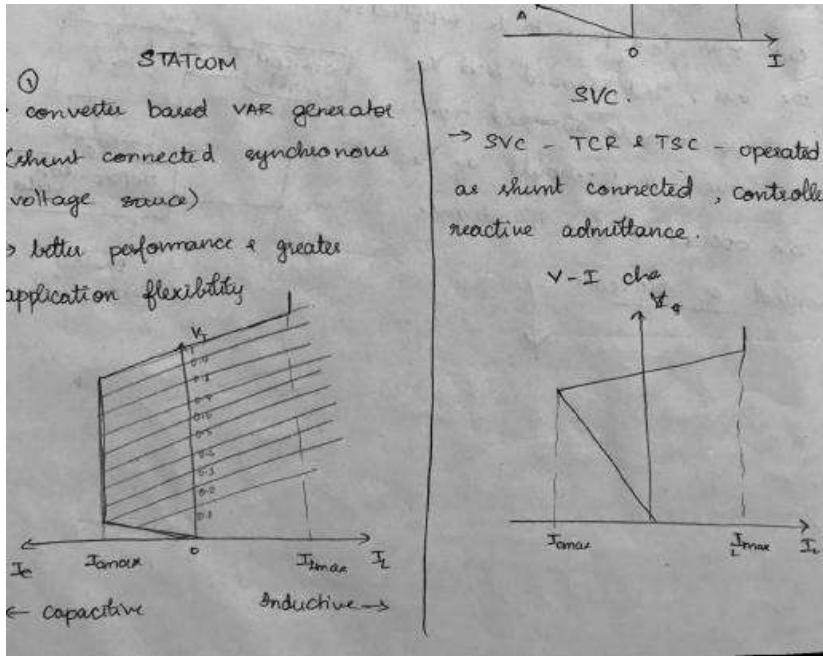 A
O
I
STATCOM
①
converter based VAR generator
(shunt connected synchronous
voltage source)
→ better performance & greater
application flexibility
V_T
1
0.9
0.8
0.5
0.3
0.2
0.1
I_c
I_cmax
O
I_Lmax
I_L
← capacitive
Inductive →
SVC.
→ SVC - TCR & TSC - operated
as shunt connected, controlle
reactive admittance.
V-I cha
I_cmax
I_Lmax
I_L